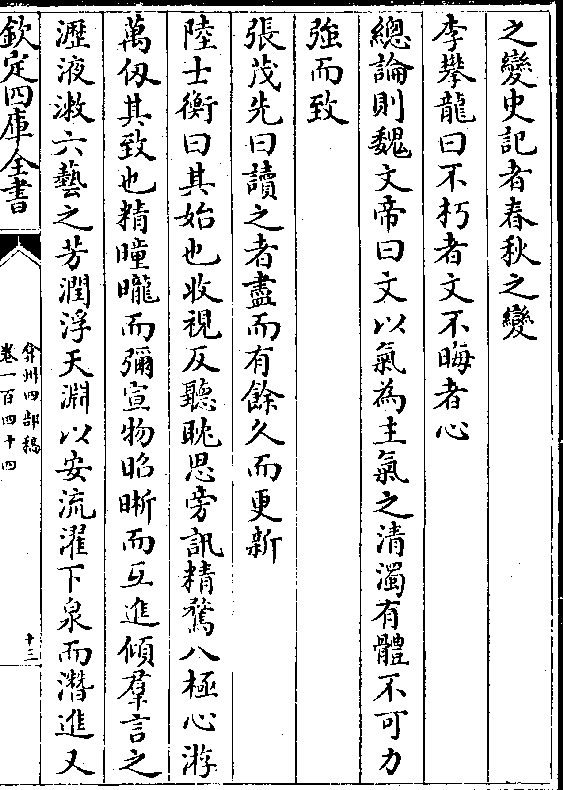 之變史記者春秋之變
李攀龍曰不朽者文不晦者心
總論則魏文帝曰文以氣為主氣之清濁有體不可力
強而致
張茂先曰讀之者盡而有餘久而更新
陸士衡曰其始也收視反聽眈思旁訊精騖八極心游
萬仭其致也精曈曨而彌宣物昭晰而互進傾羣言之
瀝液漱六藝之芳潤浮天淵以安流濯下泉而潛進又
欽定四庫全書
弇州四部稿
卷一百四十四
十三